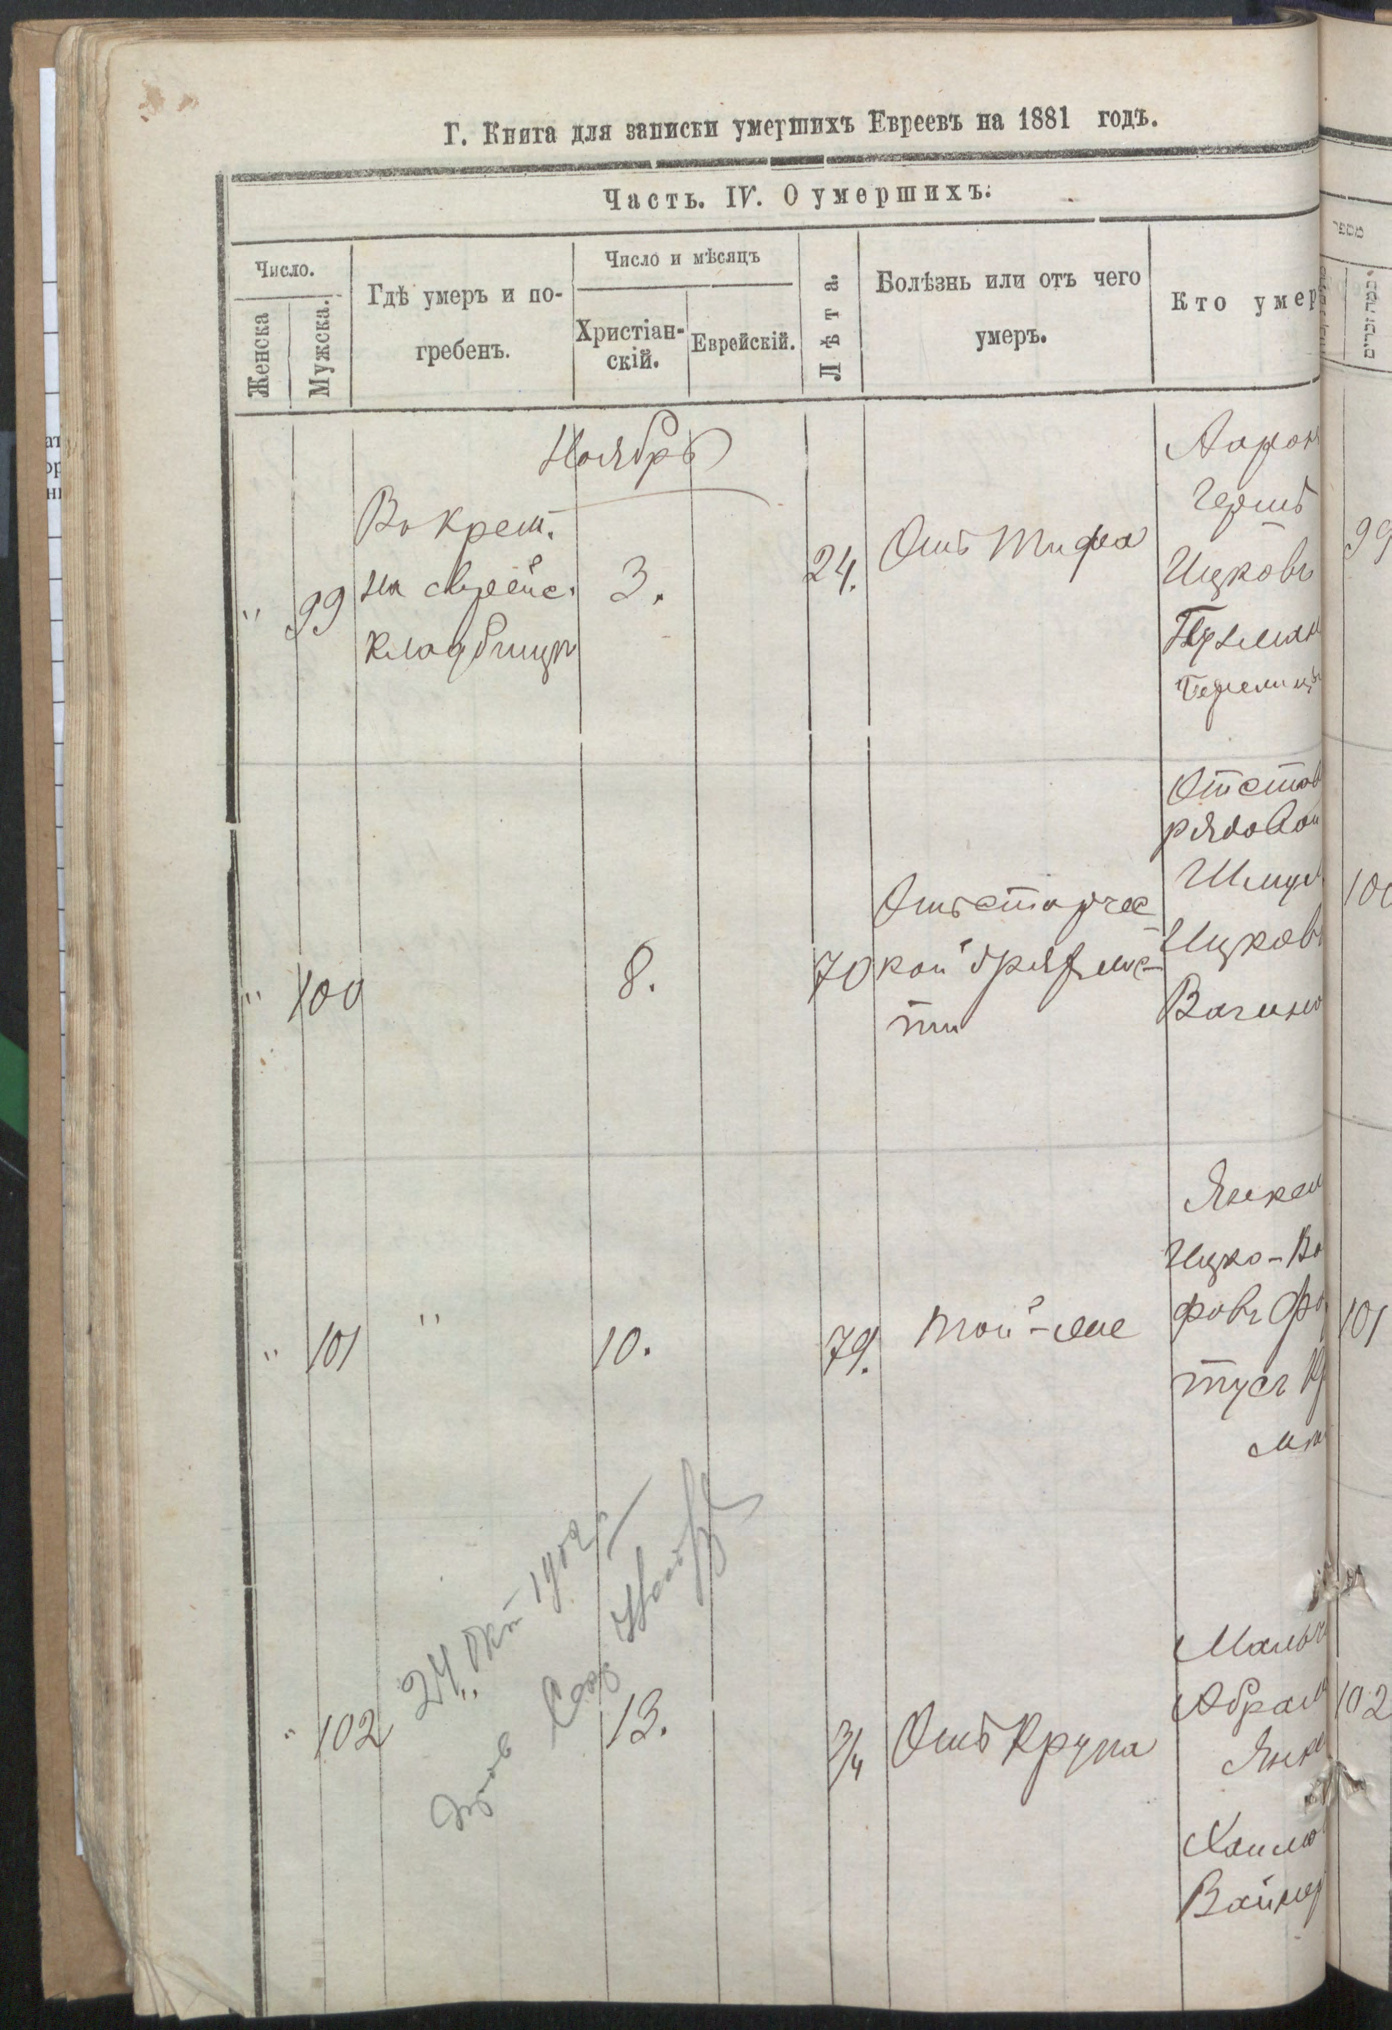 Г. Книга для записки умершихъ Евреевъ на 1881 годъ.
Часть. IV. О умершихъ.
Число.
Женска
Мужска.
Гдѣ умеръ и по-
гребенъ.
Число и мѣсяцъ
Христіан-
скій.
Еврейскій.
Лѣта.
Болѣзнь или отъ чего
умеръ.
Кто умер
Ноябрь
" 99
Въ Крем.
на еврейс.
кладбищѣ
3.
24.
Отъ тифа
Аарон
Герш
Ицковъ
99
" 100
8.
70
Отъ старчес
кой дряхлос-
ти
Отстав
рядовой
Шмул
Ицков
100
" 101
"
10.
79.
Той-же
Янкел
Ицко-Во
фовъ
тусъ
101
" 102
13.
3/4
Отъ крупа
Мальч
Абрам
Янке
Хаимо
Вайнер
102
24 Окт 1902 г.